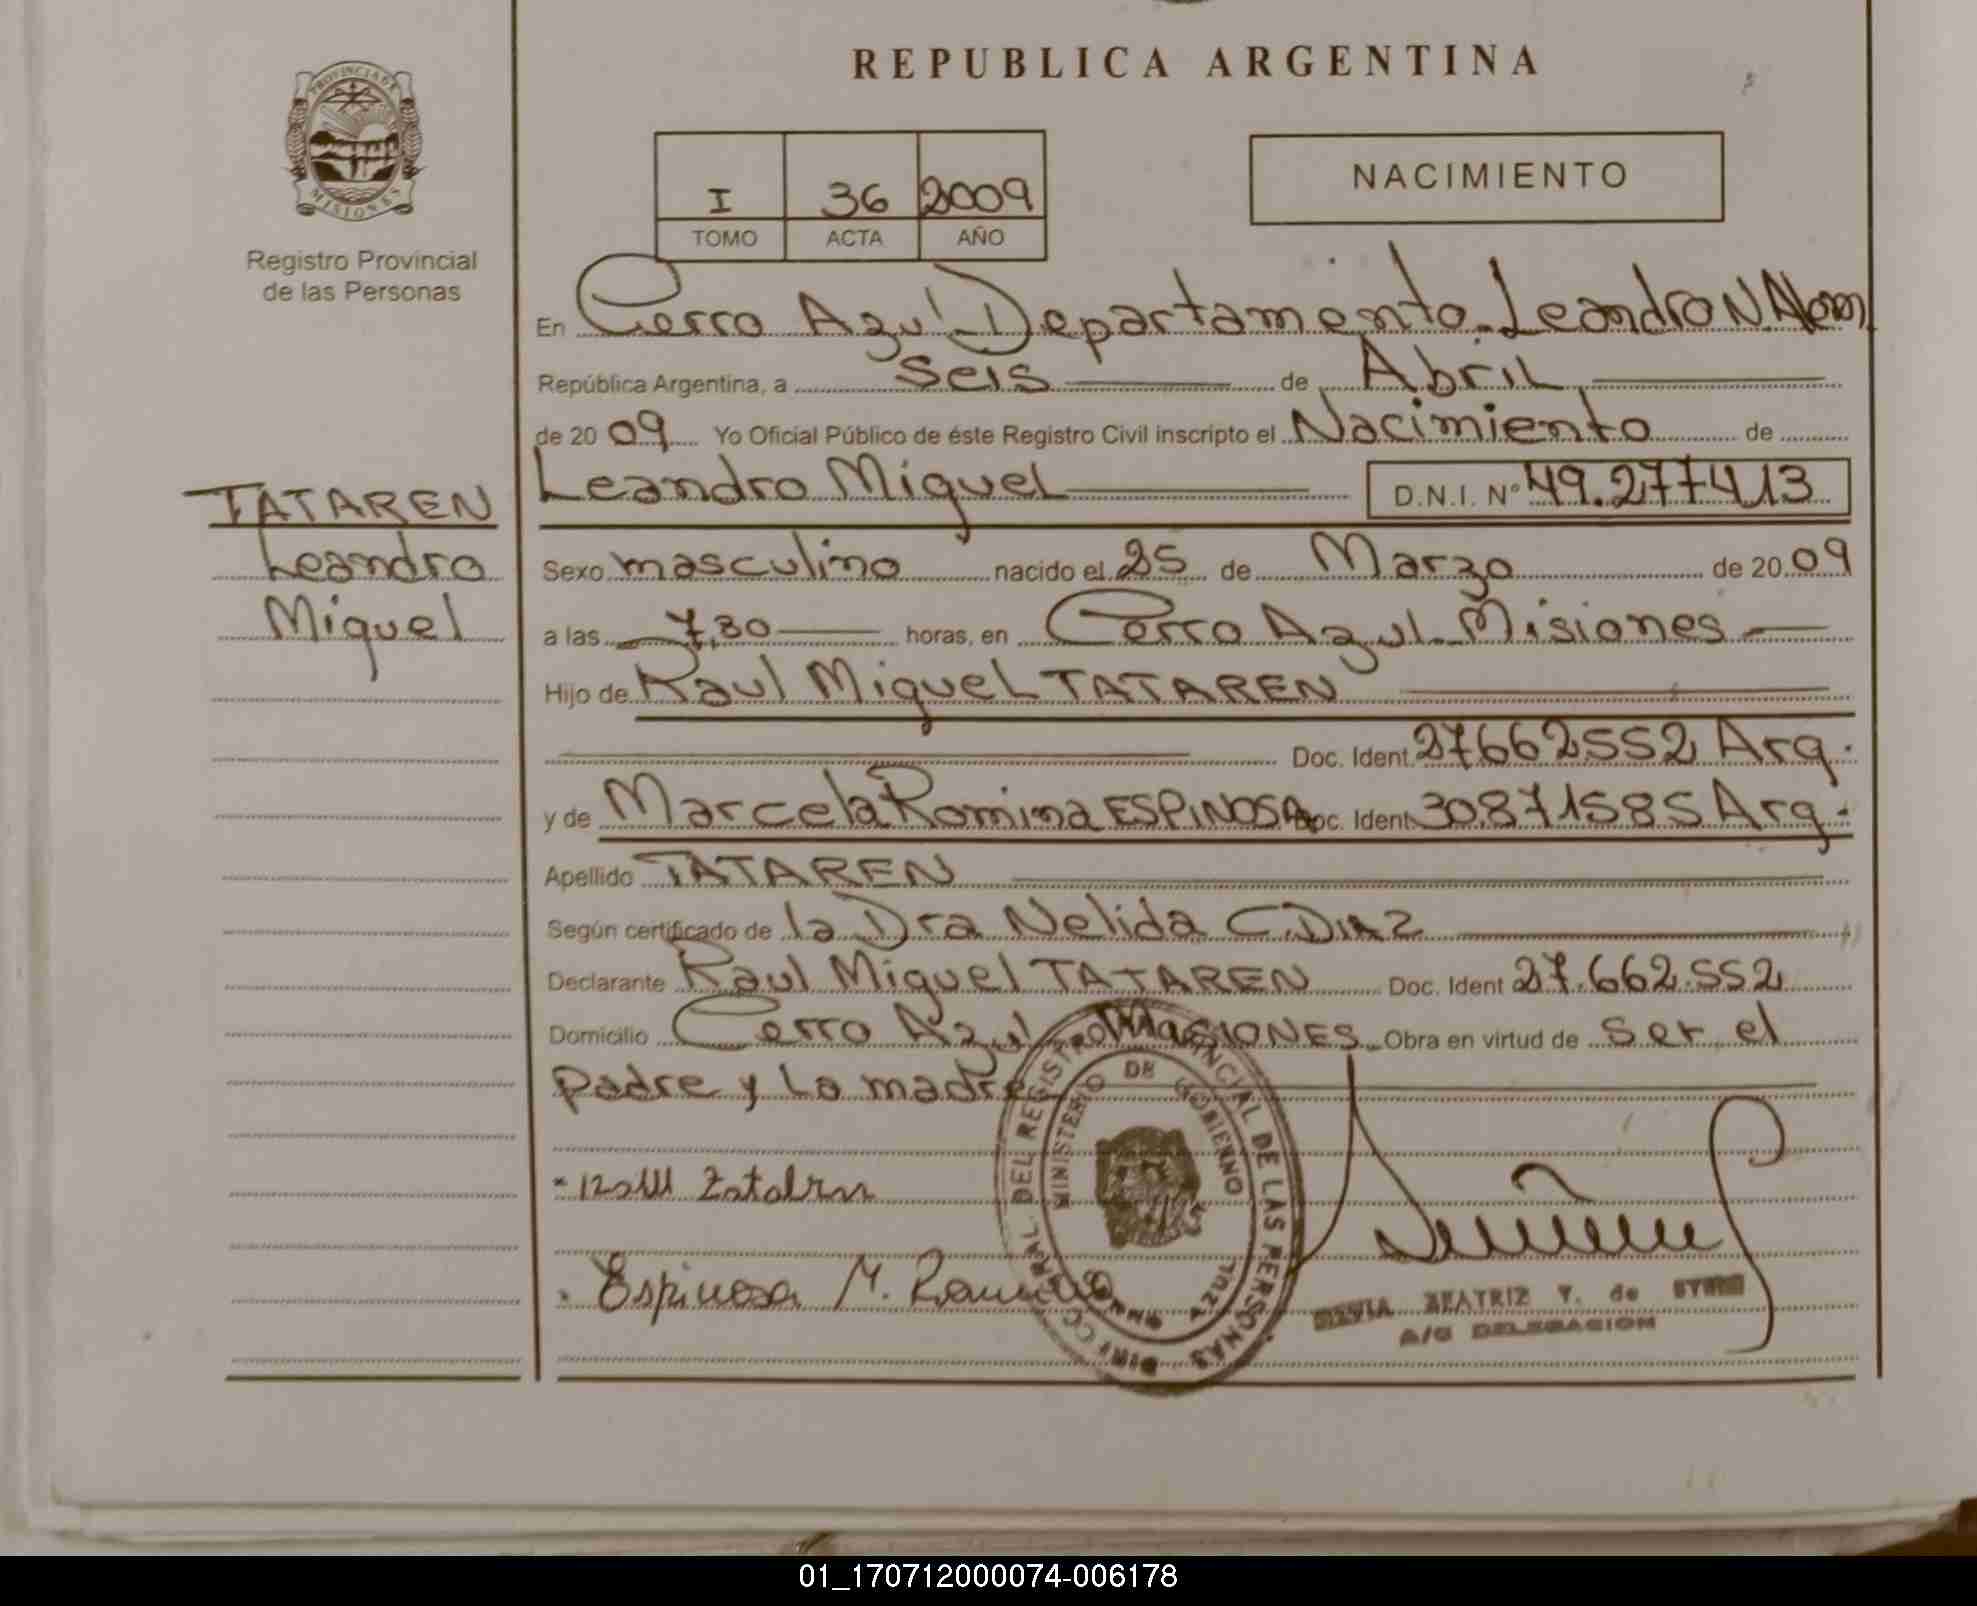 REPUBLICA ARGENTINA
PROVINCIA DE
MISIONES
Registro Provincial
de las Personas
I 36 2009
TOMO ACTA AÑO
NACIMIENTO
En Cerro Azul Departamento Leandro N. Alem
República Argentina, a seis de Abril
de 2009 Yo Oficial Público de éste Registro Civil inscripto el Nacimiento de
Leandro Miguel D.N.I. Nº 49.277413
TATAREN
Leandro
Miguel
Sexo masculino nacido el 25 de Marzo de 2009
a las 7,30 horas, en Cerro Azul - Misiones
Hijo de Raul Miguel TATAREN
Doc. Ident. 27662552 Arg.
y de Marcela Romina ESPINOSA Doc. Ident. 30.871585 Arg.
Apellido TATAREN
Según certificado de la Dra Nelida C. DIAZ
Declarante Raul Miguel TATAREN Doc. Ident 27.662.552
Domicilio Cerro Azul MISIONES Obra en virtud de ser el
padre y la madre
Espinosa M. Romina
DEL REGISTRO PROVINCIAL DE LAS PERSONAS
MINISTERIO DE GOBIERNO
BEATRIZ V. de
A/C DELEGACION
01_170712000074-006178